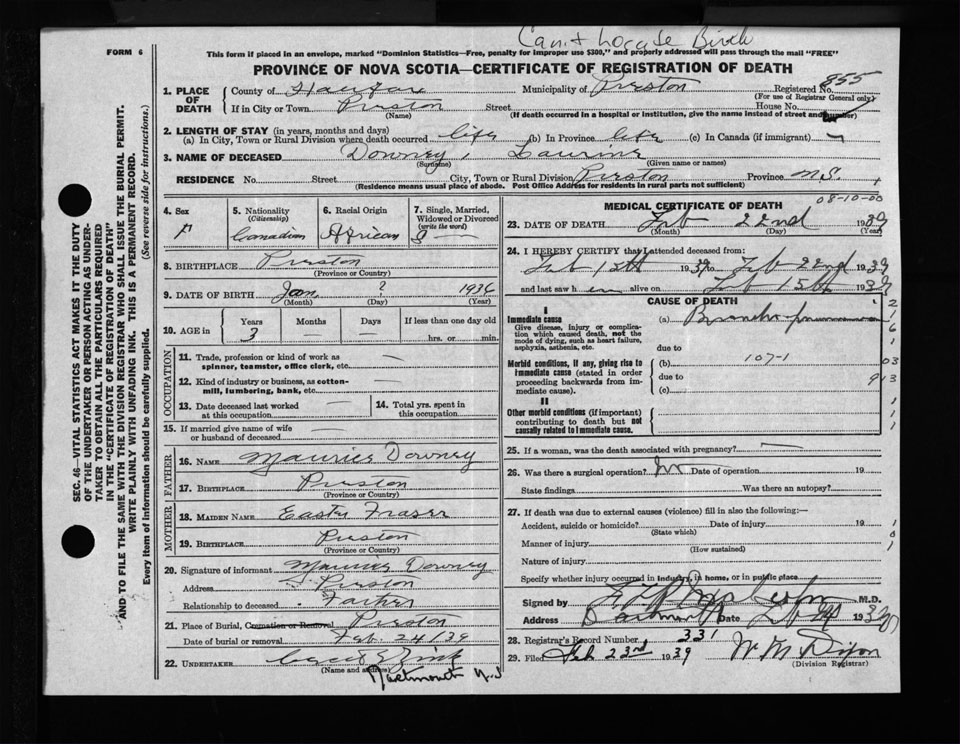 Can't Locate Birth
FORM 6
This form if placed in an envelope, marked "Dominion Statistics—Free, penalty for improper use $300," and properly addressed will pass through the mail "FREE"
PROVINCE OF NOVA SCOTIA—CERTIFICATE OF REGISTRATION OF DEATH
855
1. PLACE OF DEATH
County of Halifax Municipality of Preston Registered No.
(For use of Registrar General only)
If in City or Town Preston Street House No.
(Name) (If death occurred in a hospital or institution, give the name instead of street and number)
2. LENGTH OF STAY (in years, months and days)
(a) In City, Town or Rural Division where death occurred life (b) In Province life (c) In Canada (if immigrant) —
3. NAME OF DECEASED Downey, Laurine
(Surname) (Given name or names)
RESIDENCE No. Street City, Town or Rural Division Preston Province N.S.
(Residence means usual place of abode. Post Office Address for residents in rural parts not sufficient)
4. Sex F
5. Nationality (Citizenship) Canadian
6. Racial Origin African
7. Single, Married, Widowed or Divorced (write the word) S —
8. BIRTHPLACE Preston
(Province or Country)
9. DATE OF BIRTH Jan ? 1936
(Month) (Day) (Year)
10. AGE in Years Months Days If less than one day
3 — — hrs. or min.
OCCUPATION
11. Trade, profession or kind of work as spinner, teamster, office clerk, etc. —
12. Kind of industry or business, as cotton-mill, lumbering, bank, etc. —
13. Date deceased last worked at this occupation —
14. Total yrs. spent in this occupation
15. If married give name of wife or husband of deceased —
FATHER
16. NAME Maurice Downey
17. BIRTHPLACE Preston
(Province or Country)
MOTHER
18. MAIDEN NAME Easter Fraser
19. BIRTHPLACE Preston
(Province or Country)
20. Signature of informant Maurice Downey
Address Preston
Relationship to deceased Father
21. Place of Burial, Cremation or Removal Preston
Date of burial or removal Feb. 24/39
22. UNDERTAKER
(Name and address)
Dartmouth N.S
MEDICAL CERTIFICATE OF DEATH
08-10-00
23. DATE OF DEATH Feb 22nd 1939
(Month) (Day) (Year)
24. I HEREBY CERTIFY that I attended deceased from:
Feb 15th 1939 to Feb 22nd 1939
and last saw her alive on Feb 15th 1939
CAUSE OF DEATH
I
Immediate cause
Give disease, injury or complication which caused death, not the mode of dying, such as heart failure, asphyxia, asthenia, etc.
(a) Broncho pneumonia
due to
Morbid conditions, if any, giving rise to immediate cause (stated in order proceeding backwards from immediate cause).
(b) 107-1
due to
(c)
II
Other morbid conditions (if important) contributing to death but not causally related to immediate cause.
25. If a woman, was the death associated with pregnancy? —
26. Was there a surgical operation? No Date of operation 19
State findings Was there an autopsy?
27. If death was due to external causes (violence) fill in also the following:—
Accident, suicide or homicide? Date of injury 19
(State which)
Manner of injury
(How sustained)
Nature of injury
Specify whether injury occurred in industry, in home, or in public place
Signed by M.D.
Address Dartmouth Date Feb 1939
28. Registrar's Record Number 331
29. Filed Feb 23rd 1939 W M Dixon
(Division Registrar)
SEC. 46—VITAL STATISTICS ACT MAKES IT THE DUTY OF THE UNDERTAKER OR PERSON ACTING AS UNDERTAKER TO OBTAIN ALL THE PARTICULARS REQUIRED IN THE "CERTIFICATE OF REGISTRATION OF DEATH" AND TO FILE THE SAME WITH THE DIVISION REGISTRAR WHO SHALL ISSUE THE BURIAL PERMIT.
WRITE PLAINLY WITH UNFADING INK. THIS IS A PERMANENT RECORD.
Every item of information should be carefully supplied. (See reverse side for instructions.)